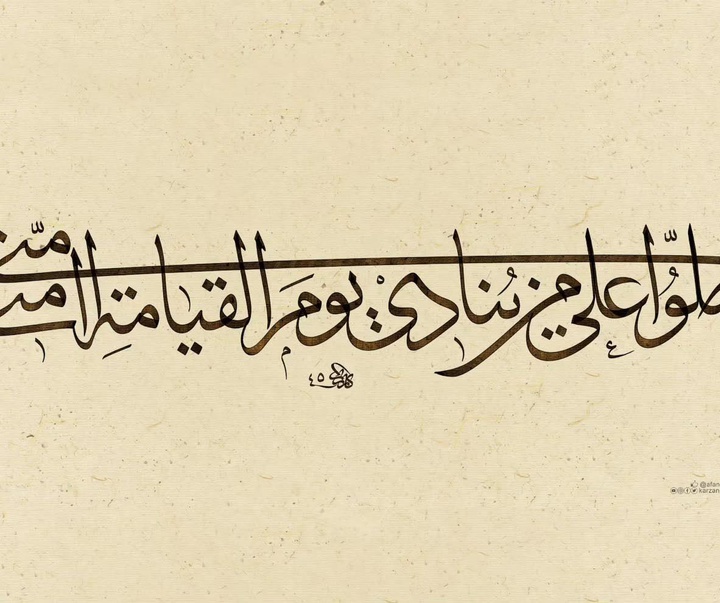 صلّوا على من ينادي يوم القيامةِ
امتي
امّتي
٤٥
@afan
karzan